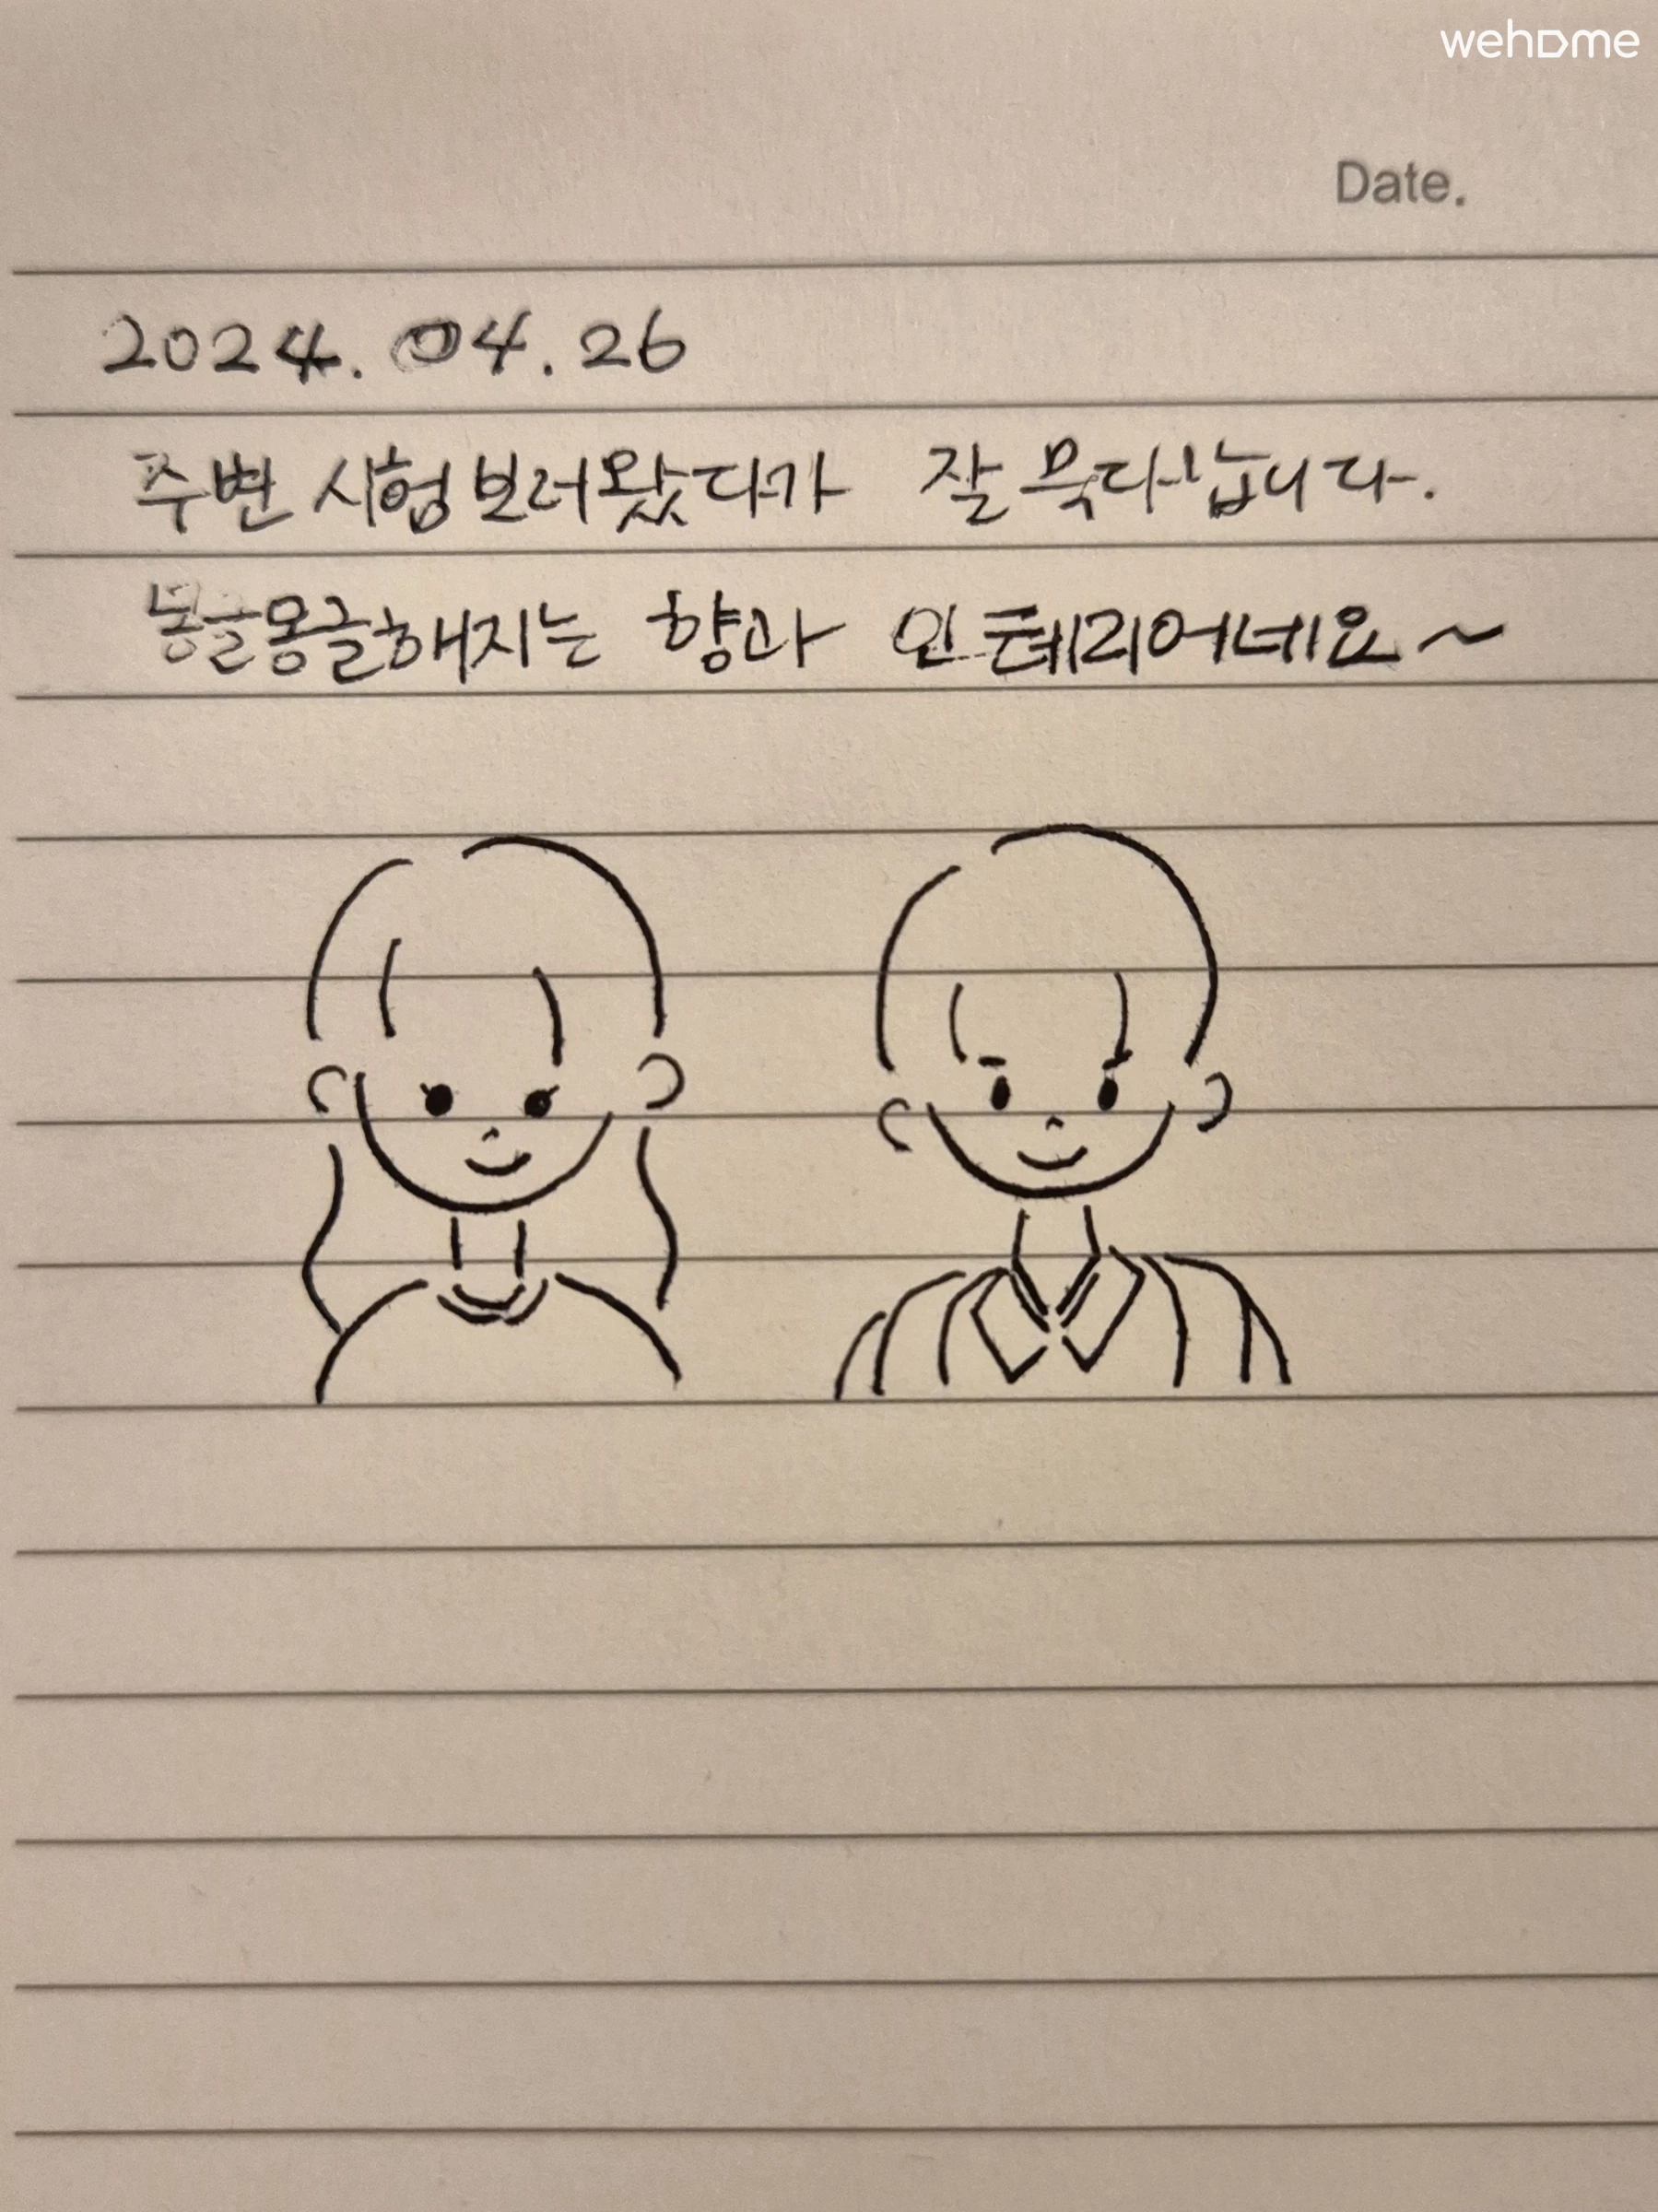 wehome
Date.
2024.04.26
주변 시험보러왔다가 잘 묵다갑니다.
몽글몽글해지는 향과 인테리어네요~